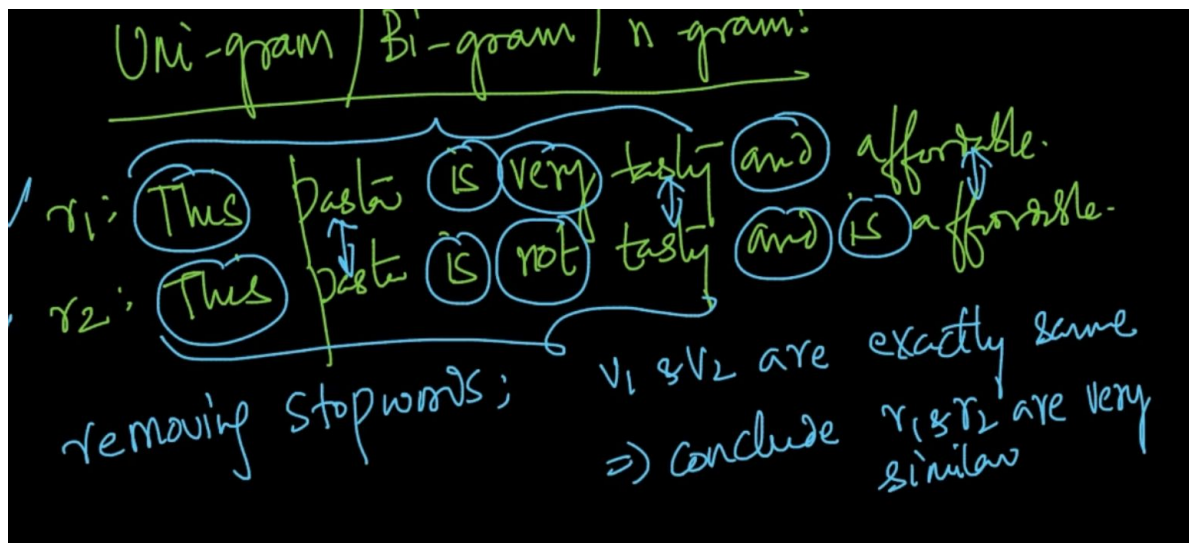 Uni-gram / Bi-gram / n-gram:
r1: This pasta is very tasty and affordable.
r2: This pasta is not tasty and is affordable.
removing stopwords;
v1 & v2 are exactly same
⇒ conclude r1 & r2 are very
similar